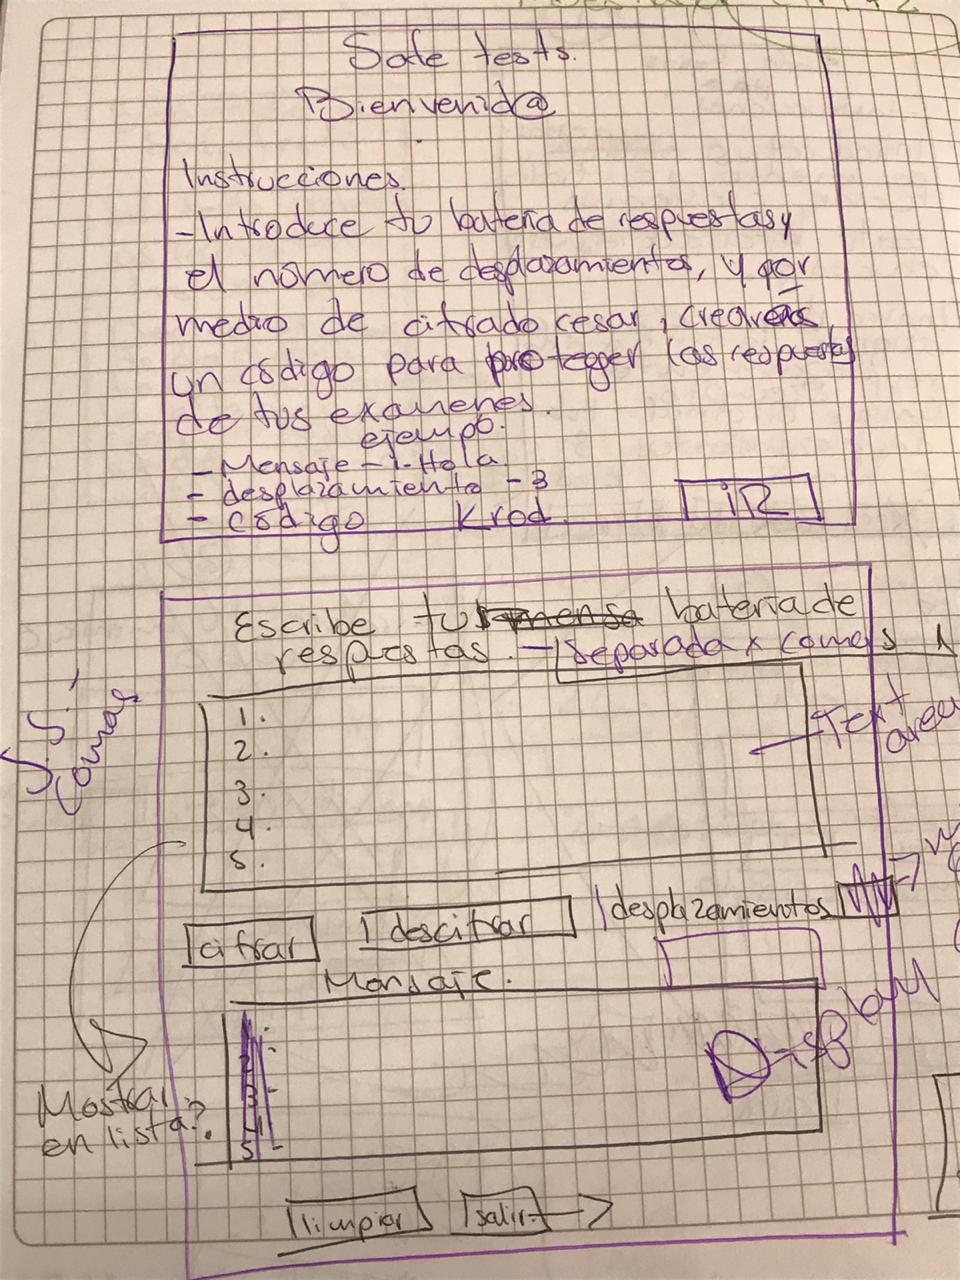 Safe tests.
Bienvenid@
Instrucciones.
-Introduce tu bateria de respuestas y
el número de desplazamientos, y por
medio de cifrado cesar, crearás
un código para protegger las respuestas
de tus examenes.
ejempo:
- Mensaje - 1. Hola
- desplazamiento - 3
- código Krod
iR
Escribe tu bateria de
respestas. - Separada x comas
1.
2.
3.
4.
5.
Text
area
Comas
cifrar
descifrar
desplazamientos
Mensaje.
2
3
4
5
Mostrar
en lista?
limpiar
salir